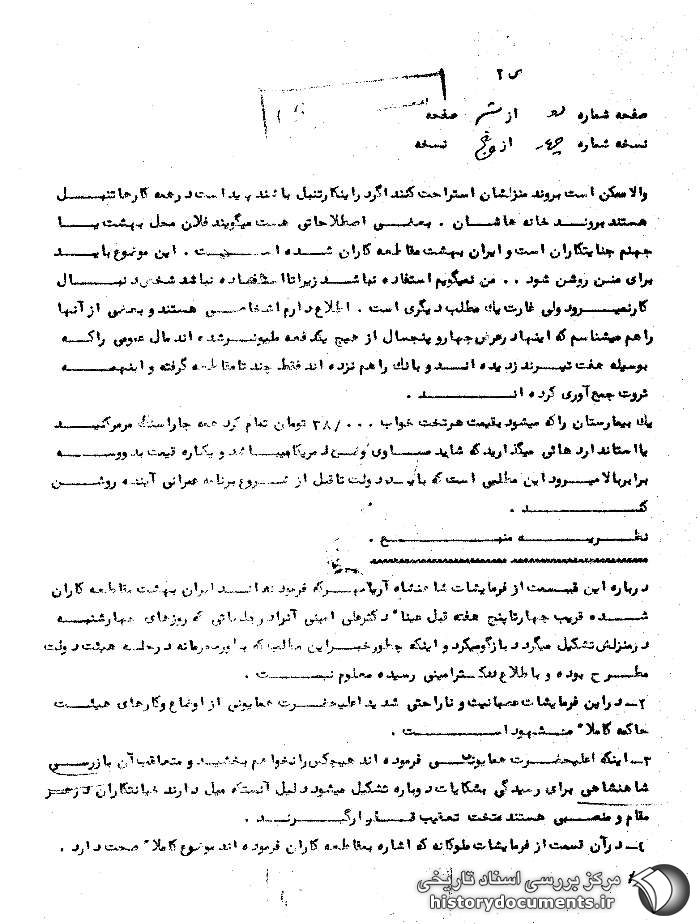 صفحه شماره دو از شش صفحه
نسخه شماره چهار از پنج نسخه
والا ممکن است بروند منزلشان استراحت کنند اگر در اینکار تنبل باشند بدیداست در همه کارها تنبل
هستند بروند خانه هاشان . بعضی اصطلاحاتی هست میگویند فلان محل بهشت یا
جهنم جنایتکاران است و ایران بهشت مقاطعه کاران شده است . این موضوع باید
برای من روشن شود . . من نمیگویم استفاده نباشد زیرا تا استفاده نباشد شخص دنبال
کار نمیرود ولی غارت یک مطلب دیگری است . اطلاع دارم اشخاصی هستند و بعضی از آنها
را هم میشناسم که اینها در عرض چهار و پنجسال از هیچ یکدفعه ملیونر شده اند مال عمومی را که
بوسیله هفت تیر ندزدیده اند و بانک را هم نزده اند فقط چند تا مقاطعه گرفته و اینهمه
ثروت جمع آوری کرده اند .
یک بیمارستان را که میشود بقیمت هر تخت خواب ۳۸/۰۰۰ تومان تمام کرد همه جا را سنگ مرمر کنید
یا استاندارد هائی میگذارید که شاید مساوی آمریکا میباشد و یکباره قیمت بدو و سه
برابر بالا میرود این مطلبی است که باید دولت تا قبل از شروع برنامه عمرانی آینده روشن
کند .
نظریه منبع .
درباره این قسمت از فرمایشات شاهنشاه آریامهر که فرموده اند ایران بهشت مقاطعه کاران
شده قریب چهار تا پنج هفته قبل عینا" دکتر علی امینی آنرا در جلساتی که روزهای چهارشنبه
در منزلش تشکیل میگردد بازگو میکرد و اینکه چطور خبر این مطالب که بطور محرمانه در جلسه هیئت دولت
مطرح بوده و باطلاع دکتر امینی رسیده معلوم نیست .
۲ـ در این فرمایشات عصبانیت و ناراحتی شدید اعلیحضرت همایونی از اوضاع و کارهای هیئت
حاکمه کاملا" مشهود است .
۳ـ اینکه اعلیحضرت همایونی فرموده اند هیچکس را نخواهم بخشید و متعاقب آن بازرسی
شاهنشاهی برای رسیدگی بشکایات دوباره تشکیل میشود دلیل آنست که میل دارند خیانتکاران در هر
مقام و منصبی هستند تحت تعقیب قرار گیرند .
٤ـ در آن قسمت از فرمایشات ملوکانه که اشاره بمقاطعه کاران فرموده اند موضوع کاملا" صحت دارد .
مرکز بررسی اسناد تاریخی
historydocuments.ir